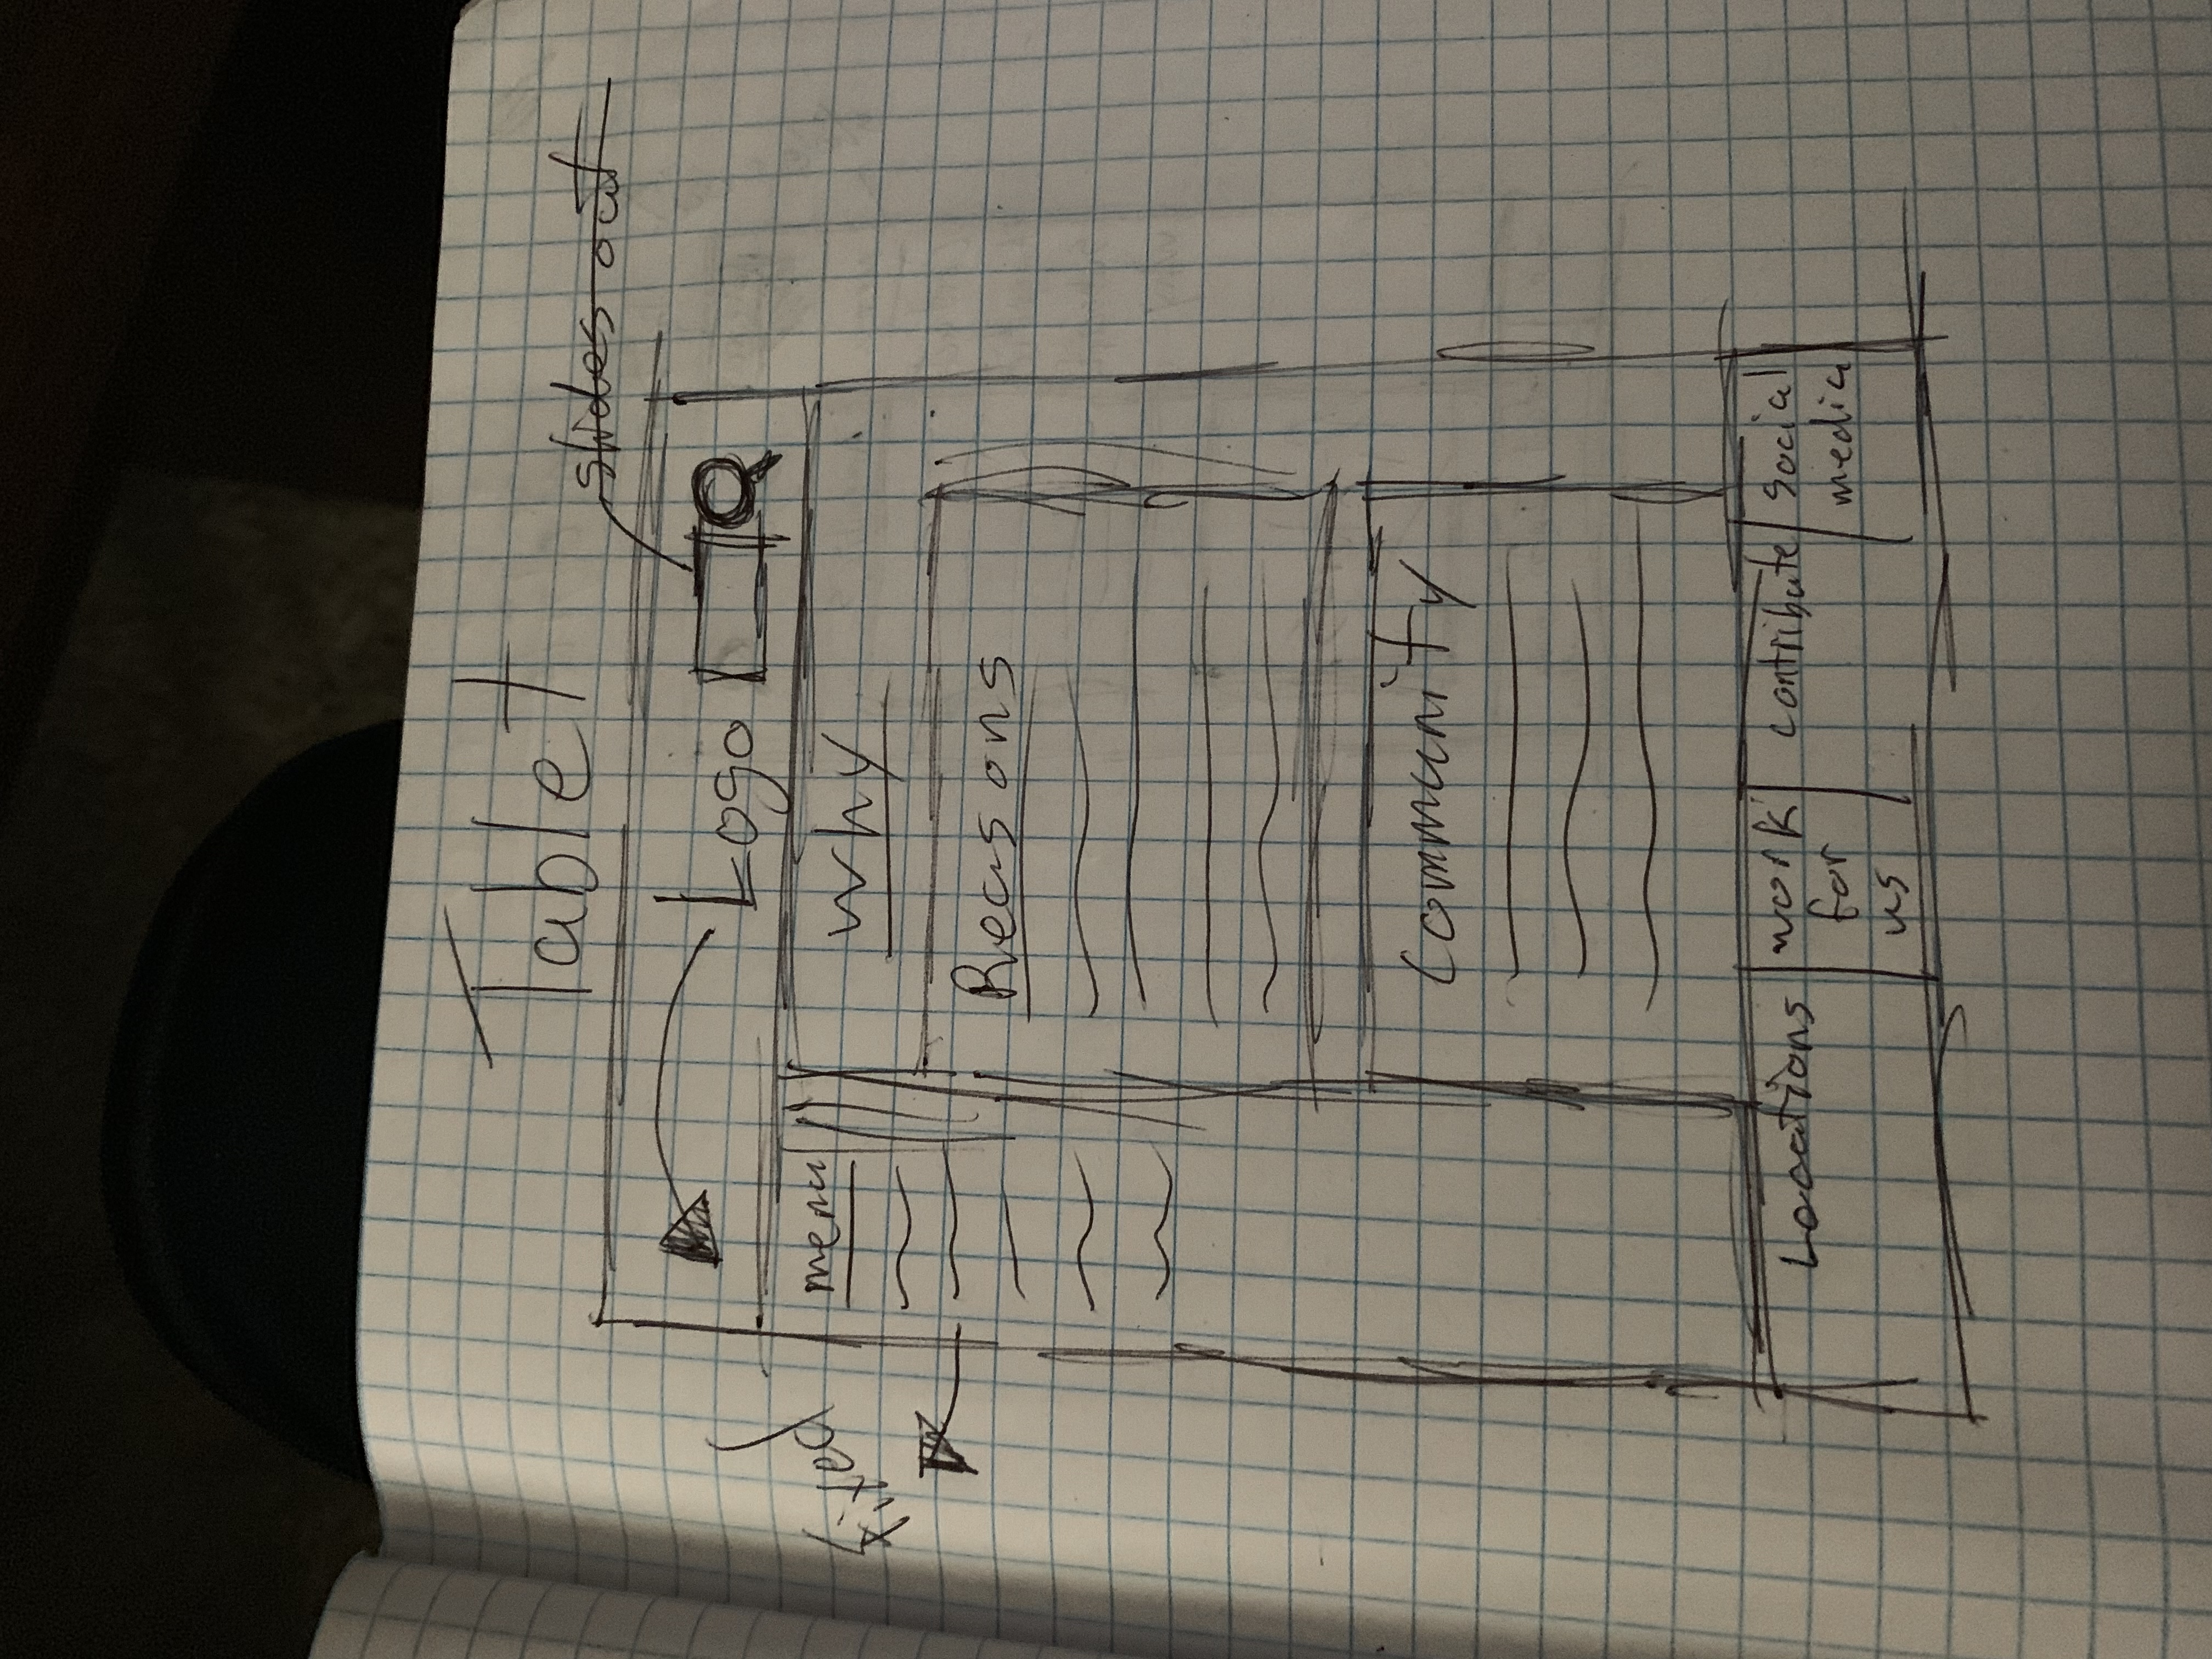 Tablet
slides out
Logo
Fixed
menu
Why
Reasons
Community
Locations
work
for
us
contribute
social
media